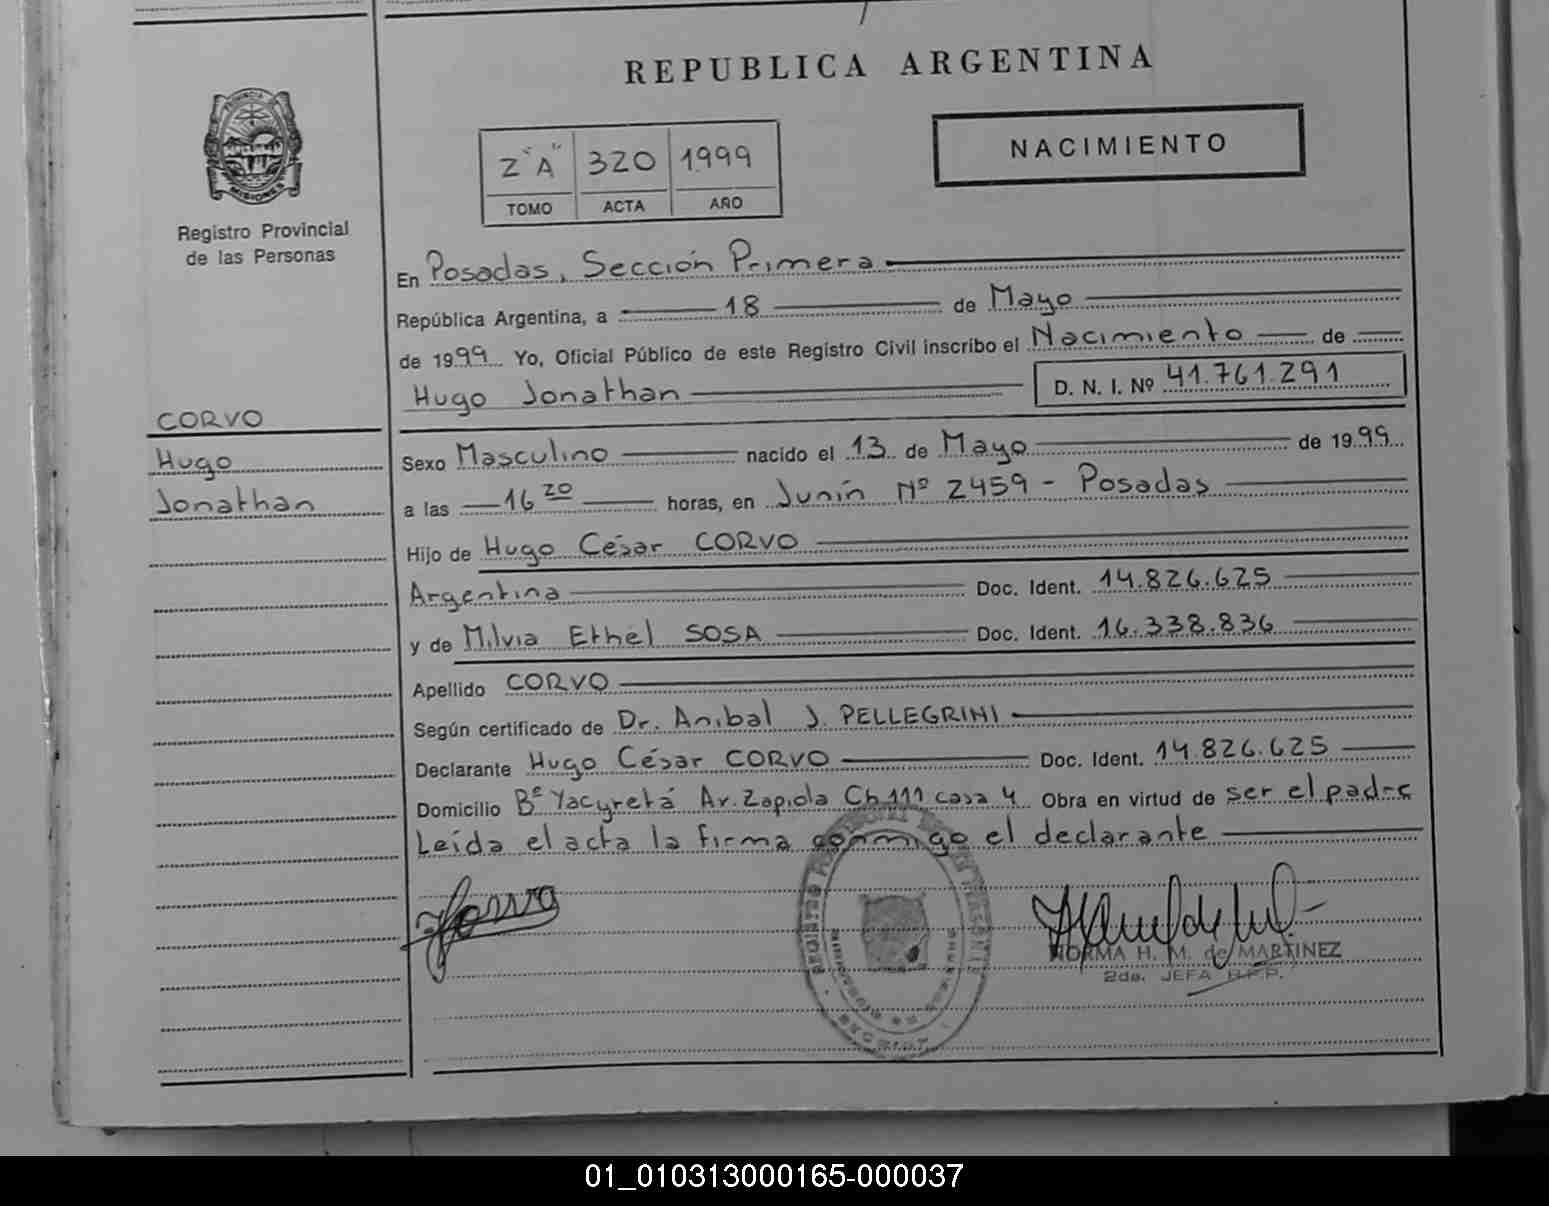 REPUBLICA ARGENTINA
PROVINCIA
MISIONES
Registro Provincial
de las Personas
2 "A" 320 1999
TOMO ACTA AÑO
NACIMIENTO
En Posadas, Sección Primera
República Argentina, a 18 de Mayo
de 1999 Yo, Oficial Público de este Registro Civil inscribo el Nacimiento de
Hugo Jonathan D. N. I. Nº 41.761.291
CORVO
Hugo
Jonathan
Sexo Masculino nacido el 13 de Mayo de 1999
a las 16 20 horas, en Junín Nº 2459 - Posadas
Hijo de Hugo César CORVO
Argentina Doc. Ident. 14.826.625
y de Milvia Ethel SOSA Doc. Ident. 16.338.836
Apellido CORVO
Según certificado de Dr. Anibal J. PELLEGRINI
Declarante Hugo César CORVO Doc. Ident. 14.826.625
Domicilio Bº Yacyretá Av. Zapiola Ch 111 casa 4 Obra en virtud de ser el padre
Leída el acta la firma conmigo el declarante
Corvo
NORMA H. M. de MARTINEZ
2da. JEFA R.P.P.
01_010313000165-000037